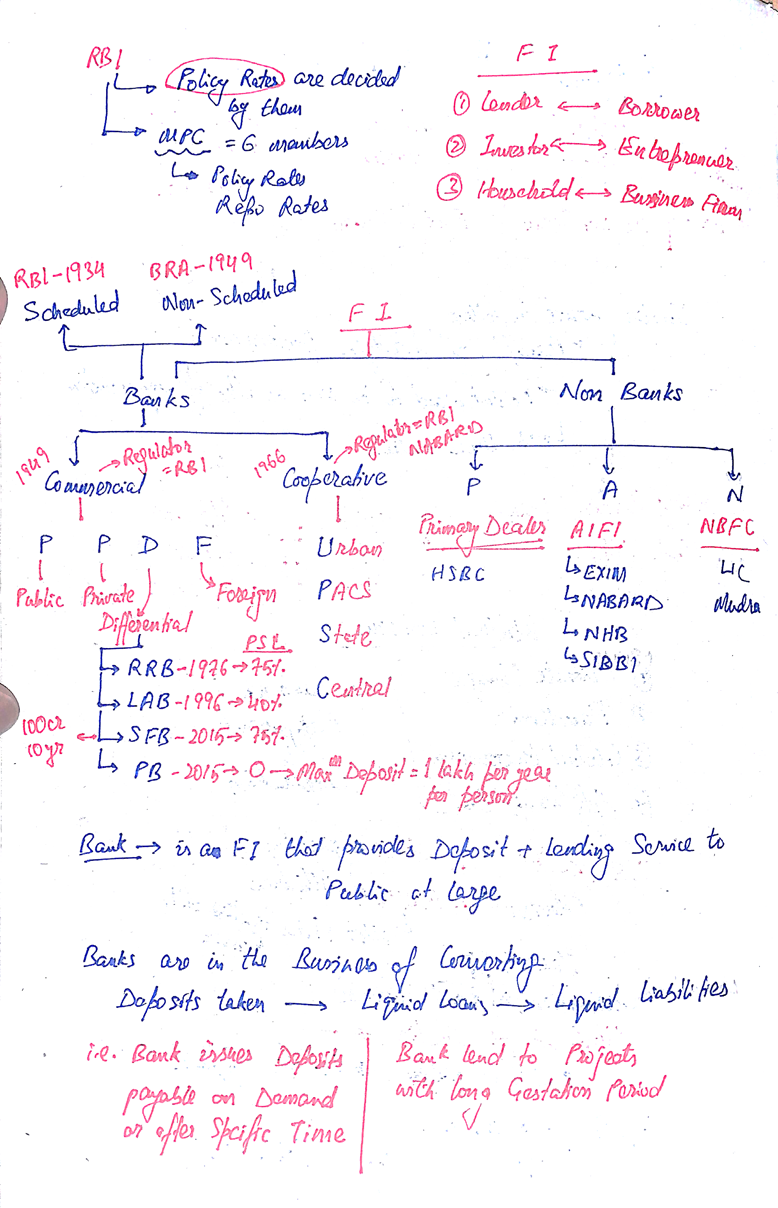 RBI
Policy Rates are decided
by them
MPC = 6 members
Policy Rates
Repo Rates
F I
① Lender ↔ Borrower
② Investor ↔ Entreprenuer
③ Household ↔ Business Firm
RBI-1934
Scheduled
BRA-1949
Non-Scheduled
F I
Banks
Non Banks
1949
Commercial
→ Regulator
= RBI
1966
Cooperative
→ Regulator = RBI
NABARD
P
A
N
P P D F
Public
Private
Differential
Foreign
Urban
PACS
State
Central
Primary Dealer
HSBC
AIFI
EXIM
NABARD
NHB
SIDBI
NBFC
LIC
Mudra
PSL
RRB-1976→75%
LAB-1996→40%
100cr
10yr
SFB-2015→75%
PB-2015→0→Maxm Deposit = 1 lakh per year
per person.
Bank → is an FI that provides Deposit + Lending Service to
Public at Large
Banks are in the Business of Converting
Deposits taken → Liquid Loans → Liquid Liabilities
i.e. Bank issues Deposits
payable on Demand
or after Spcific Time
Bank lend to Projects
with long Gestation Period